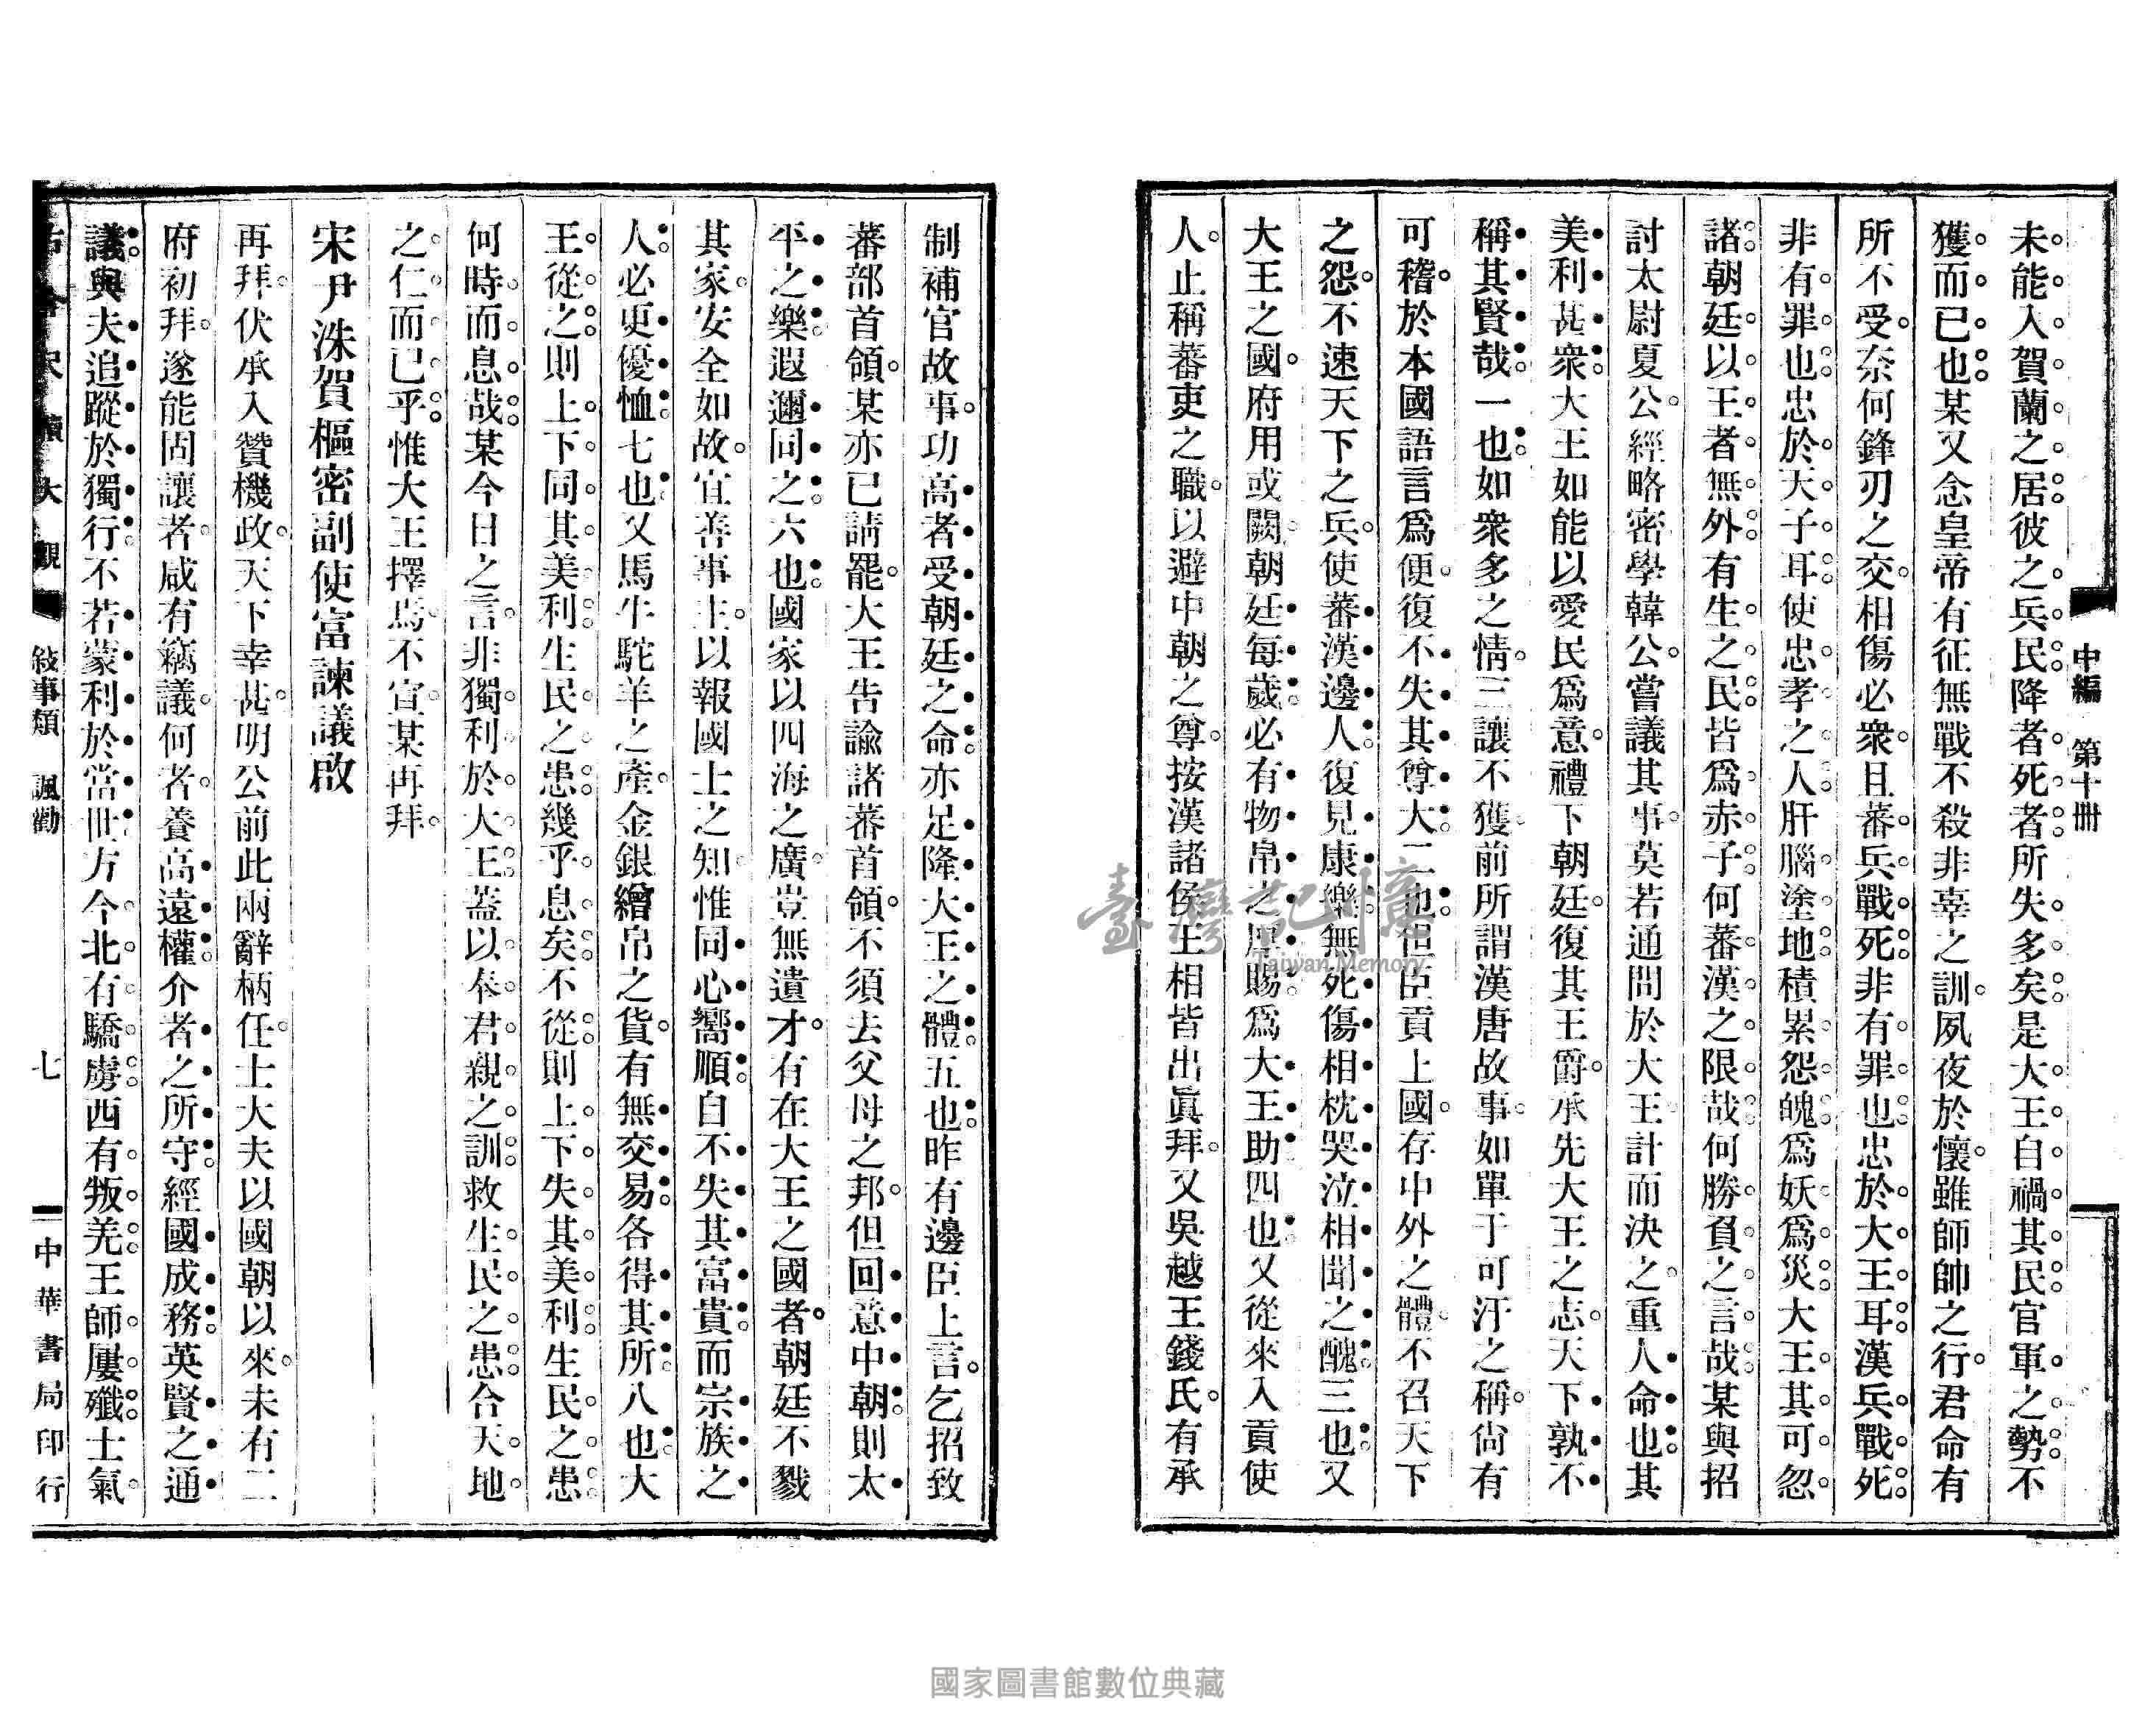 中編 第十冊
未能入賀蘭之居彼之兵民降者死者所失多矣是大王自禍其民官軍之勢不
獲而已也某又念皇帝有征無戰不殺非辜之訓夙夜於懷雖師帥之行君命有
所不受奈何鋒刃之交相傷必衆且蕃兵戰死非有罪也忠於大王耳漢兵戰死
非有罪也忠於天子耳使忠孝之人肝腦塗地積累怨魄爲妖爲災大王其可忽
諸朝廷以王者無外有生之民皆爲赤子何蕃漢之限哉何勝負之言哉某與招
討太尉夏公經略密學韓公嘗議其事莫若通問於大王計而決之重人命也其
美利甚衆大王如能以愛民爲意禮下朝廷復其王爵承先大王之志天下孰不
稱其賢哉一也如衆多之情三讓不獲前所謂漢唐故事如單于可汗之稱尙有
可稽於本國語言爲便復不失其尊大二也但臣貢上國存中外之體不召天下
之怨不速天下之兵使蕃漢邊人復見康樂無死傷相枕哭泣相聞之醜三也又
大王之國府用或闕朝廷每歲必有物帛之厚賜爲大王助四也又從來入貢使
人止稱蕃吏之職以避中朝之尊按漢諸侯王相皆出眞拜又吳越王錢氏有承
制補官故事功高者受朝廷之命亦足隆大王之體五也昨有邊臣上言乞招致
蕃部首領某亦已請罷大王告諭諸蕃首領不須去父母之邦但回意中朝則太
平之樂遐邇同之六也國家以四海之廣豈無遺才有在大王之國者朝廷不戮
其家安全如故宜善事主以報國士之知惟同心嚮順自不失其富貴而宗族之
人必更優恤七也又馬牛駝羊之產金銀繒帛之貨有無交易各得其所八也大
王從之則上下同其美利生民之患幾乎息矣不從則上下失其美利生民之患
何時而息哉某今日之言非獨利於大王蓋以奉君親之訓救生民之患合天地
之仁而已乎惟大王擇焉不宣某再拜
宋尹洙賀樞密副使富諫議啟
再拜伏承入贊機政天下幸甚明公前此兩辭柄任士大夫以國朝以來未有二
府初拜遂能固讓者咸有竊議何者養高遠權介者之所守經國成務英賢之通
議與夫追蹤於獨行不若蒙利於當世方今北有驕虜西有叛羌王師屢殲士氣
古今尺牘大觀 敍事類 諷勸 七 中華書局印行
臺灣記憶
Taiwan Memory
國家圖書館數位典藏